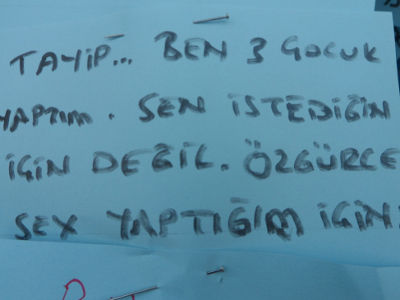 TAYİP... BEN 3 ÇOCUK
YAPTIM. SEN İSTEDİĞİN
İÇİN DEĞİL. ÖZGÜRCE
SEX YAPTIĞIM İÇİN